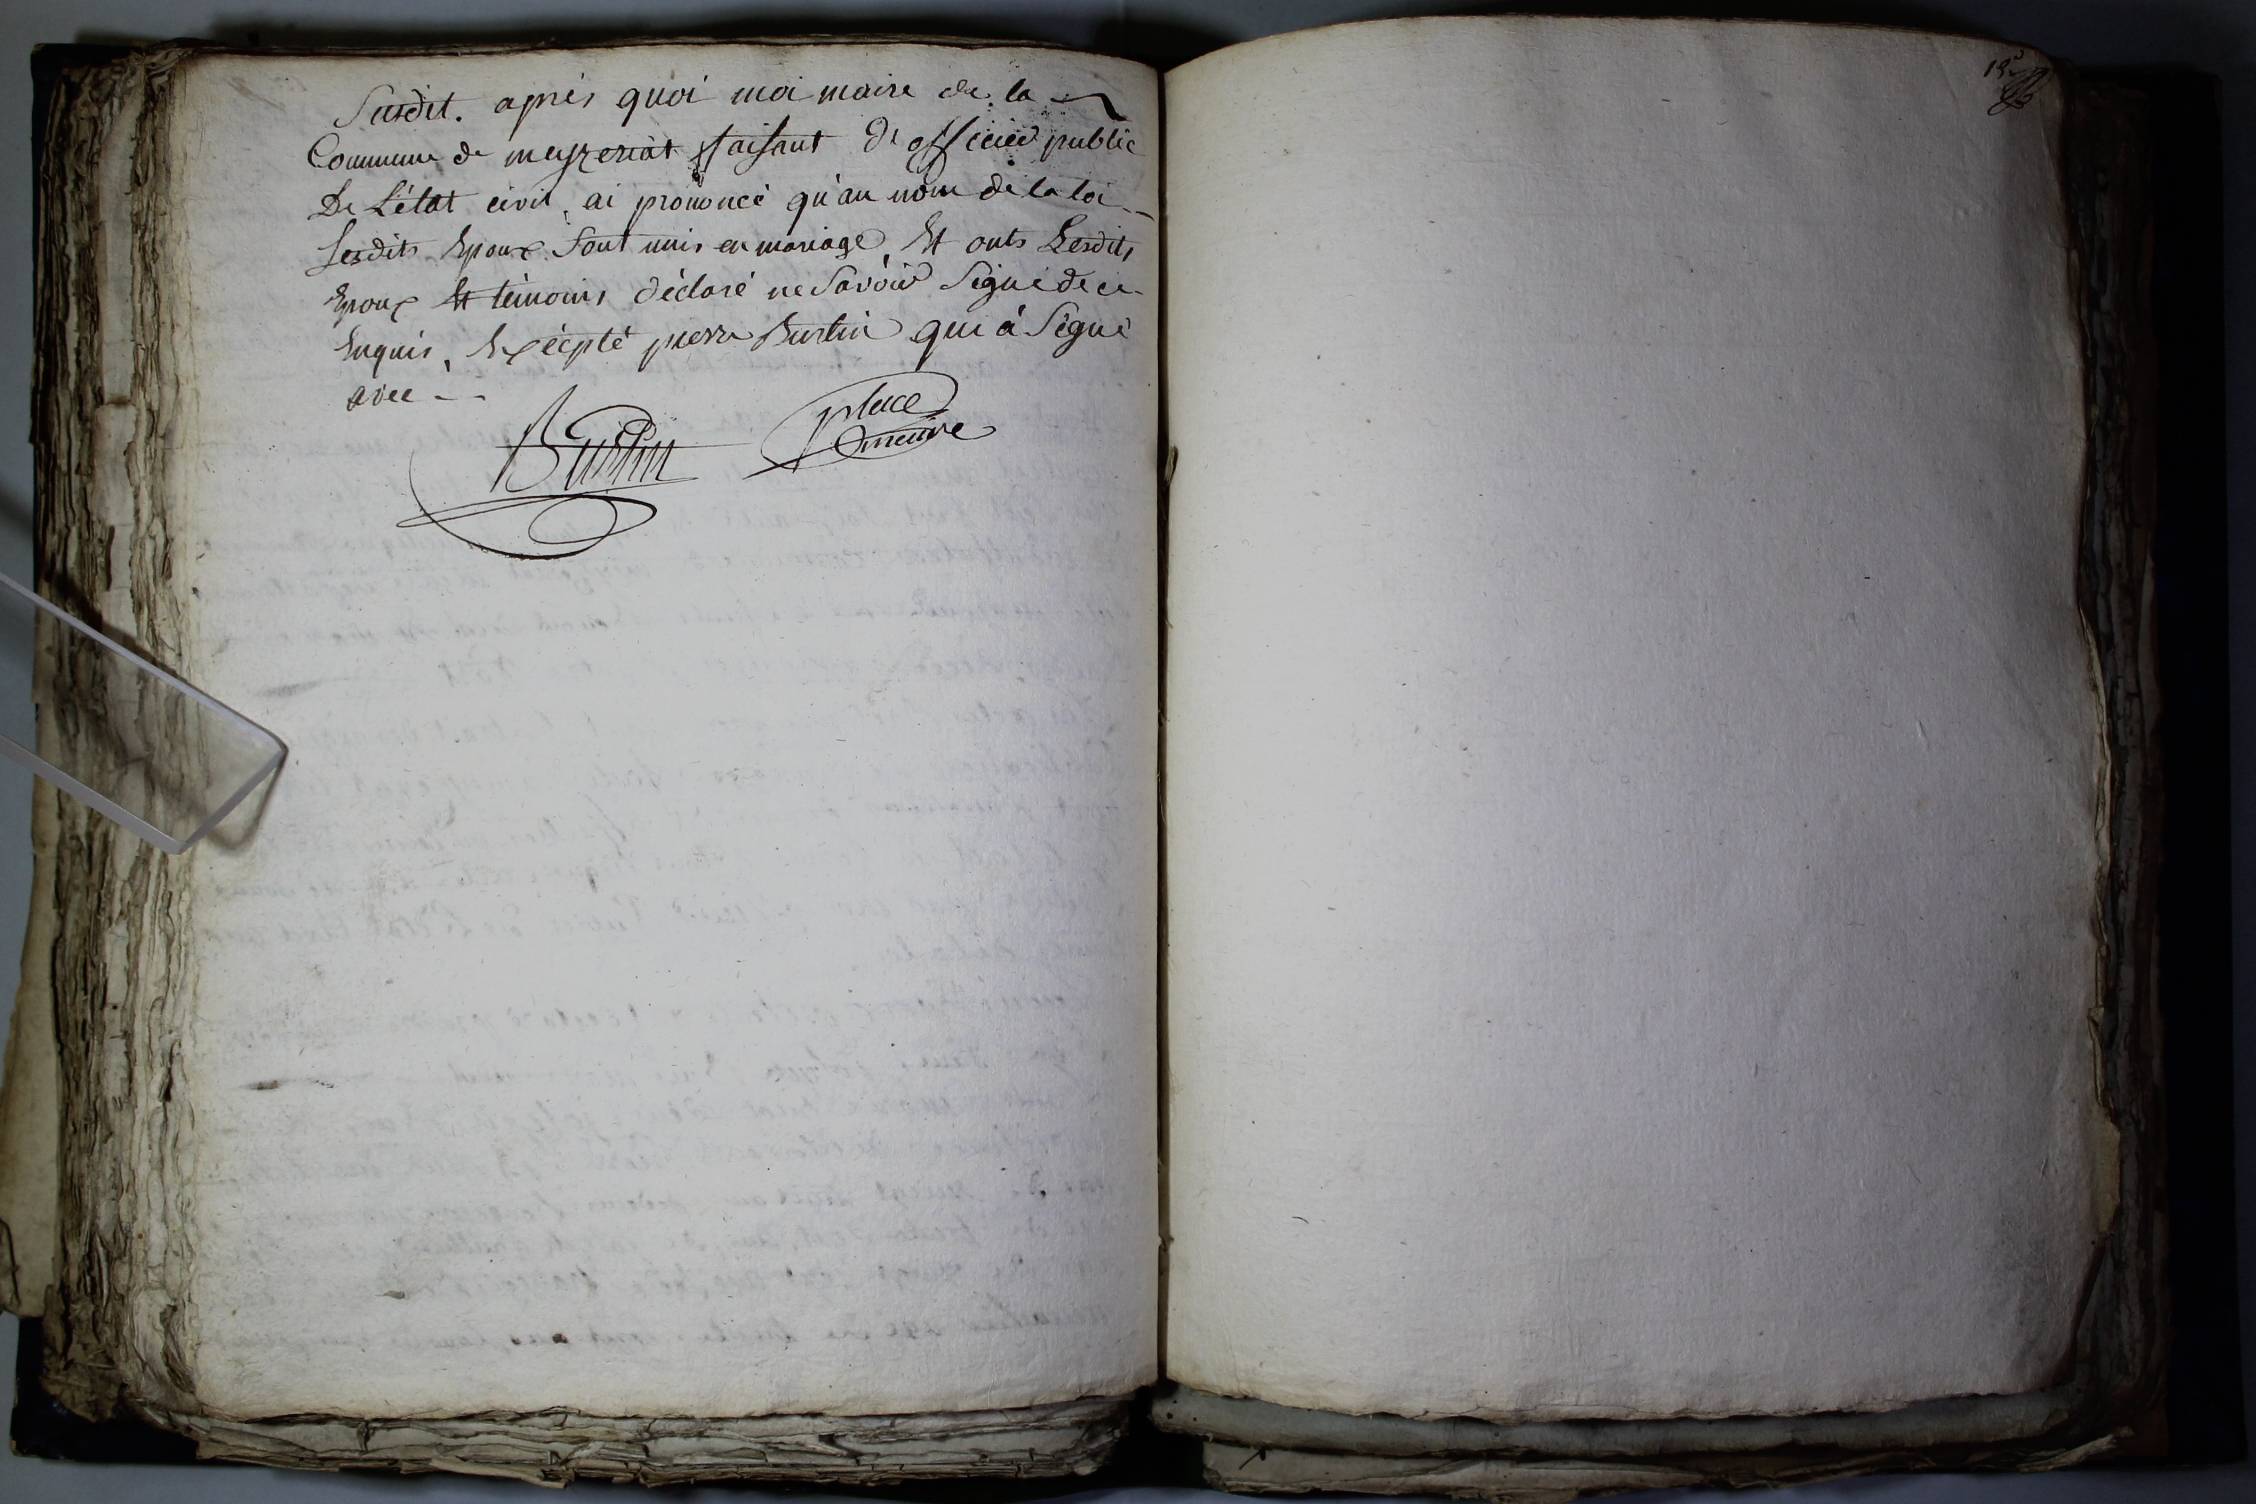 Susdit. après quoi moi maire de la
Commune de meyzeriat faisant d'officier public
De L'état civil, ai prononcé qu'au nom de la loi
Lesdits Epoux Sont unis en mariage, Et onts Lesdits
Epoux Et témoins déclaré ne Savoir Signé de ce
Enquis, Excépté pierre Burtin qui à Signé
avec
Burtin
place
maire